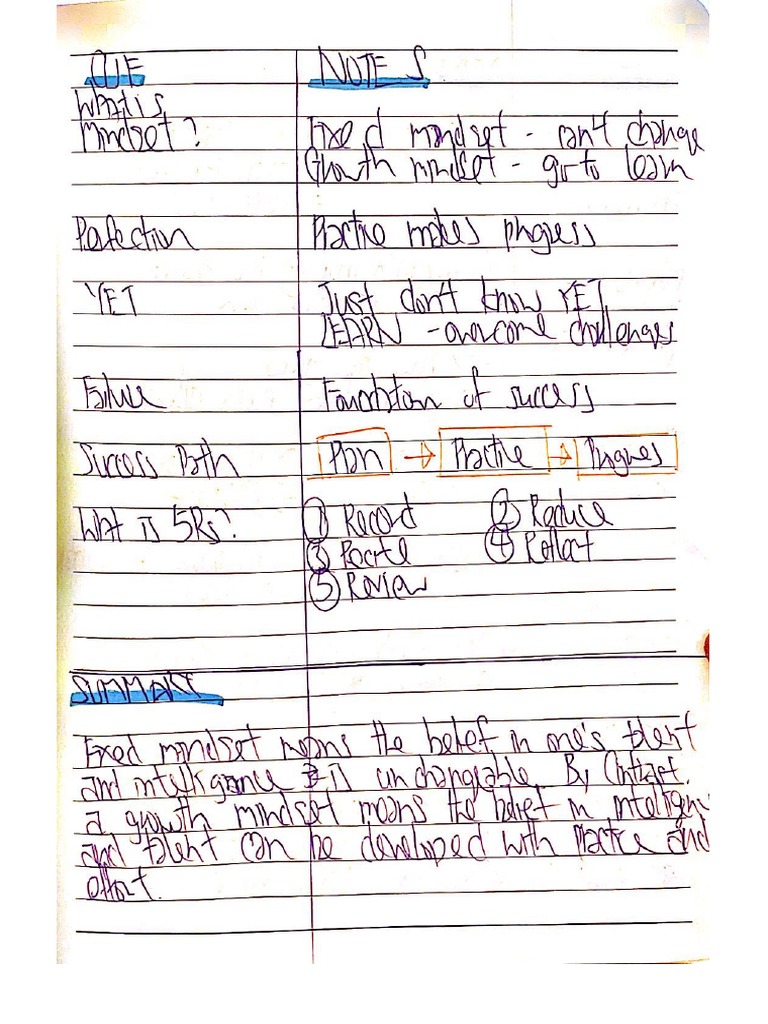 CUE NOTES
What is
Mindset? Fixed mindset - can't change
Growth mindset - go to learn
Perfection Practice makes progress
YET Just don't know YET
LEARN - overcome challenges
Failure Foundation of success
Success Path Plan → Practice → Progress
What is 5Rs? ① Record ② Reduce
③ Recite ④ Reflect
⑤ Review
SUMMARY
Fixed mindset means the belief in one's talent
and intelligence is unchangeable. By Contrast,
a growth mindset means the belief in
and talent can be developed with practice and
effort.